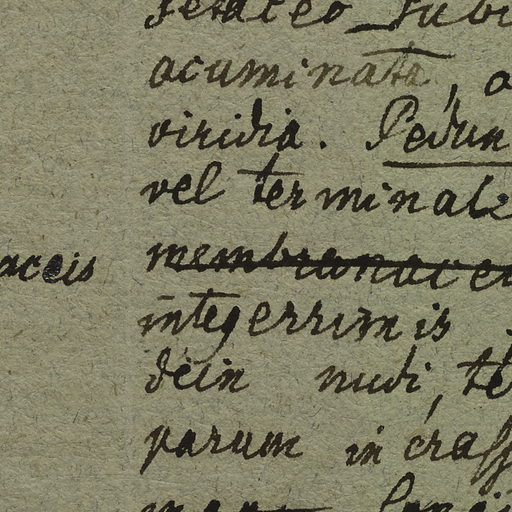 setaceo subu
acuminata, a
viridia. Pedun
vel terminale
aceis membranacei
integerrimis
dein nudi, te
parum incrass